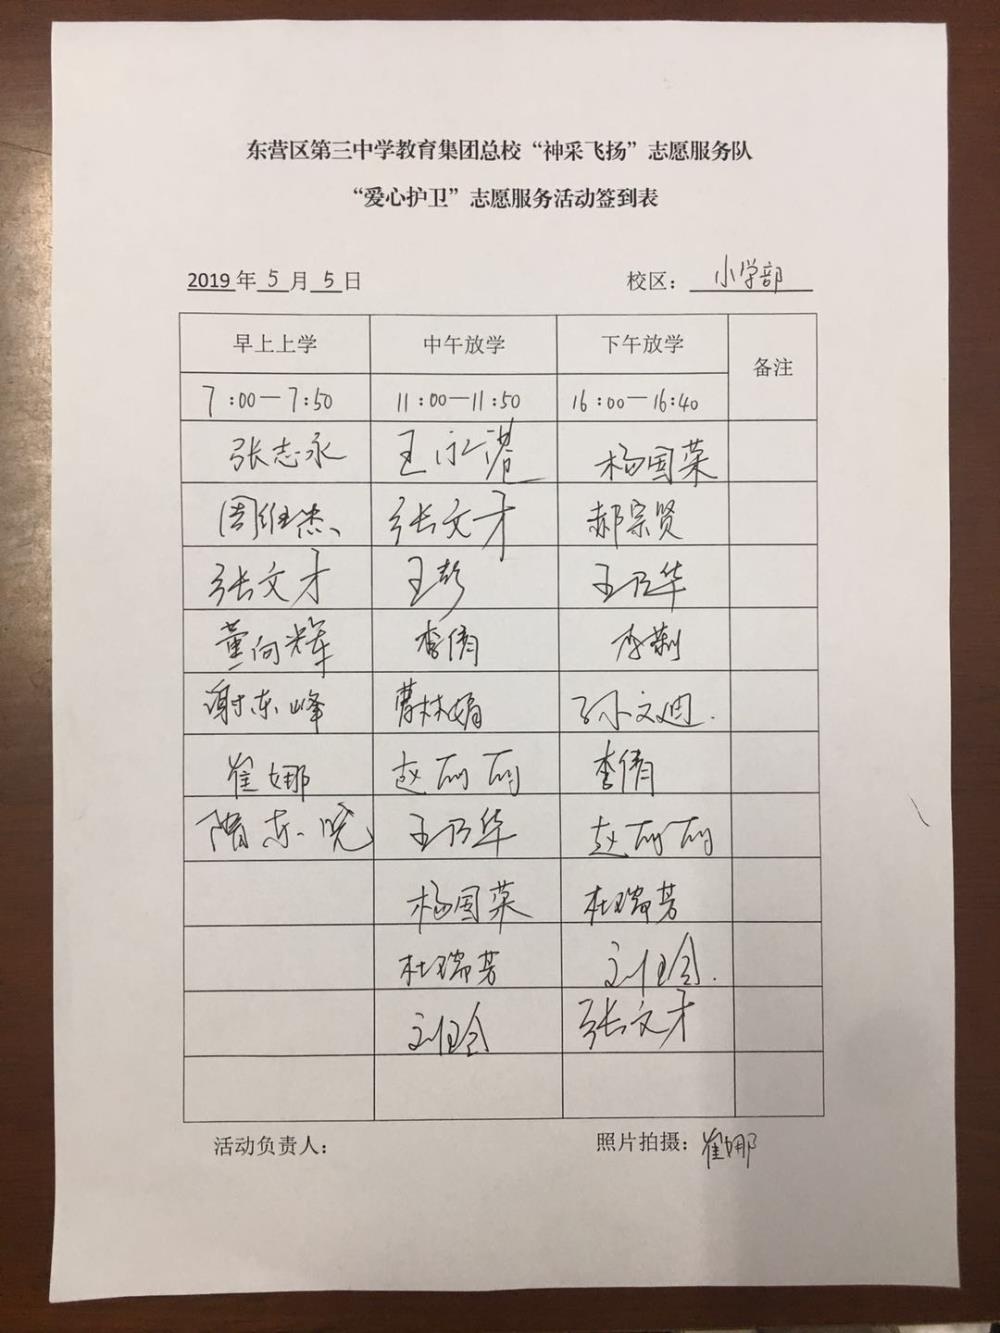 东营区第三中学教育集团总校“神采飞扬”志愿服务队
“爱心护卫”志愿服务活动签到表
2019年5月5日 校区：小学部
早上上学 中午放学 下午放学 备注
7:00—7:50 11:00—11:50 16:00—16:40
张志永 王永港 杨国荣
周维杰 张文才 郝宗贤
张文才 王彭 王乃华
董向辉 李倩 李莉
谢东峰 曹林娟 孙文迴.
崔娜 赵丽丽 李倩
隋东晓 王乃华 赵丽丽
杨国荣 杜瑞芳
杜瑞芳
张文才
活动负责人： 照片拍摄：崔娜